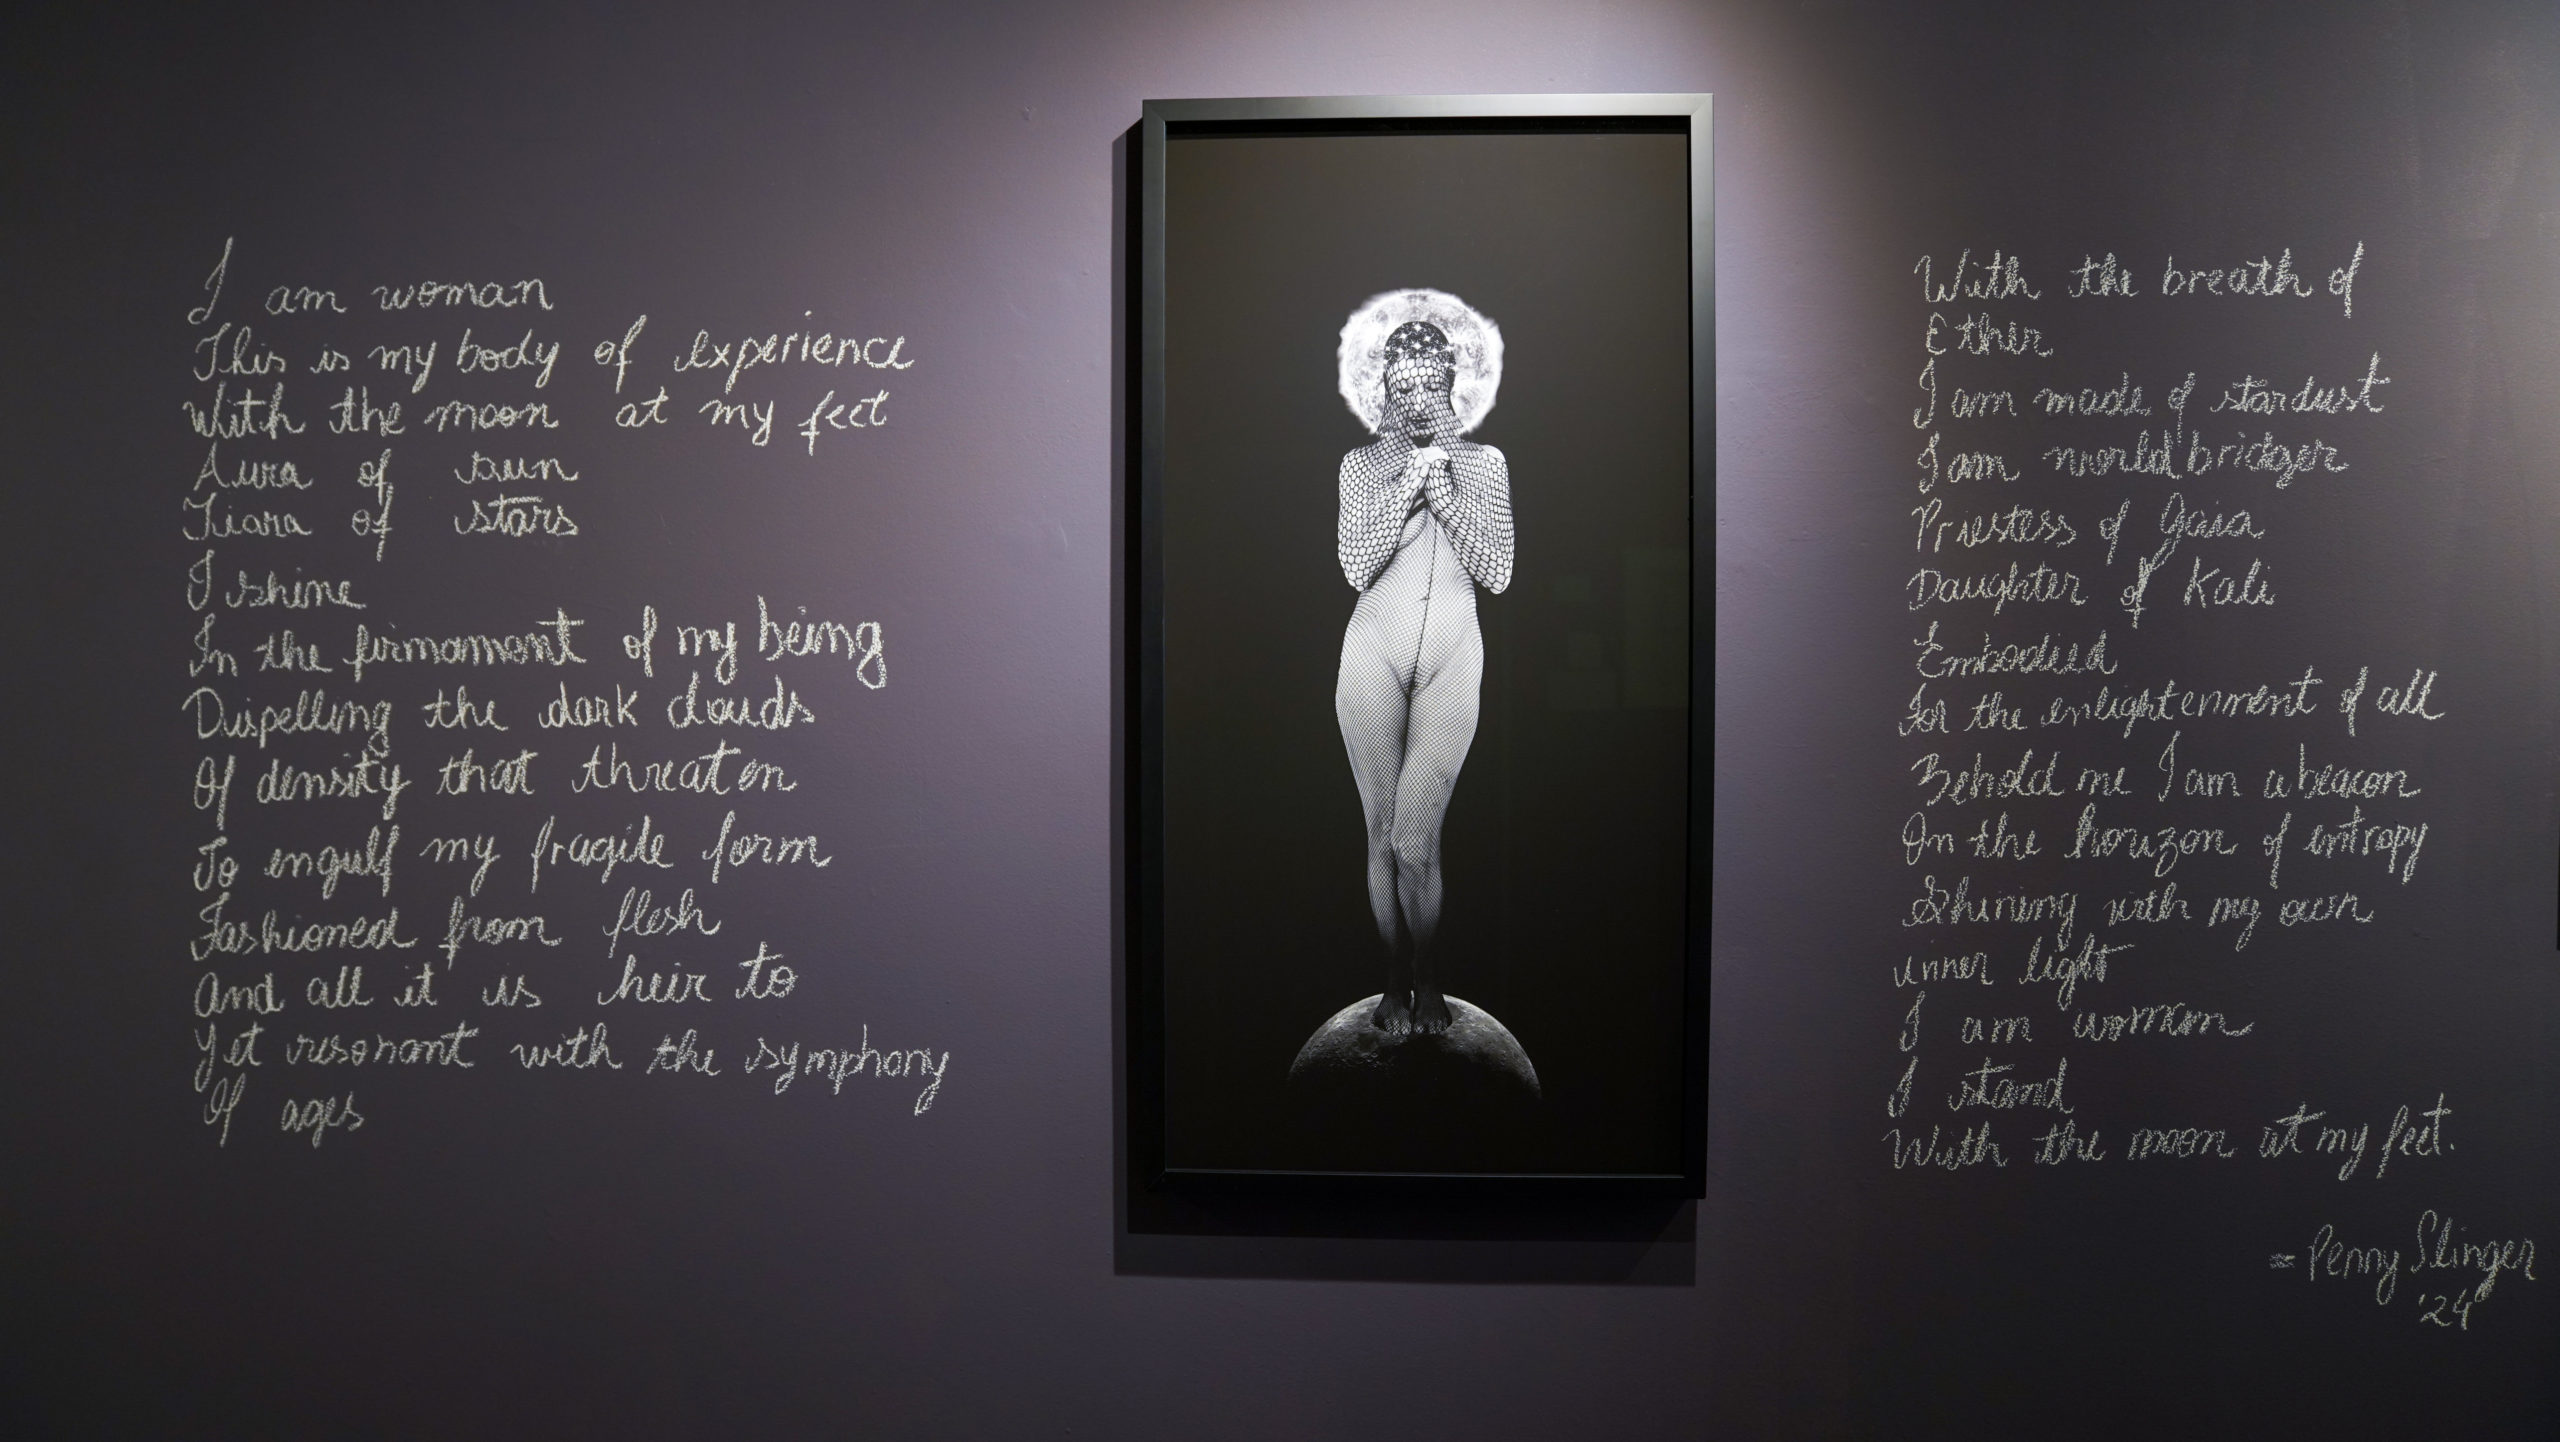 I am woman
This is my body of experience
With the moon at my feet
Aura of sun
Tiara of stars
I shine
In the firmament of my being
Dispelling the dark clouds
Of density that threaten
To engulf my fragile form
Fashioned from flesh
And all it is heir to
Yet resonant with the symphony
Of ages
With the breath of
Ether
I am made of stardust
I am worldbridger
Priestess of Gaia
Daughter of Kali
Embodied
For the enlightenment of all
Behold me I am a beacon
On the horizon of entropy
Shining with my own
inner light
I am woman
I stand
With the moon at my feet.
= Penny Slinger
'24